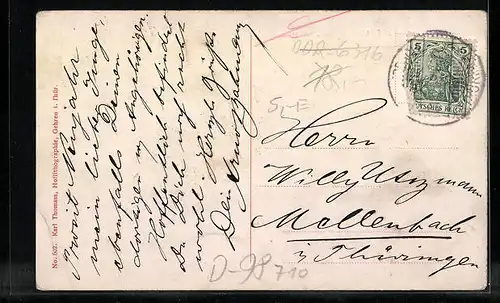 No. 507. Karl Thomann, Hoflithographide, Gehren i. Thür.
Prosit Neujahr
mein lieber Junge,
ebenfalls Deinen
sonstigen w. Angehörigen
Hoffentlich befindest
Du Dich auf recht
wohl. Herzl. Grüße
Dein
DDR-6316
S-E
5 5
DEUTSCHES REICH
Herrn
Willy
Mellenbach
i/ Thüringen
D-98710